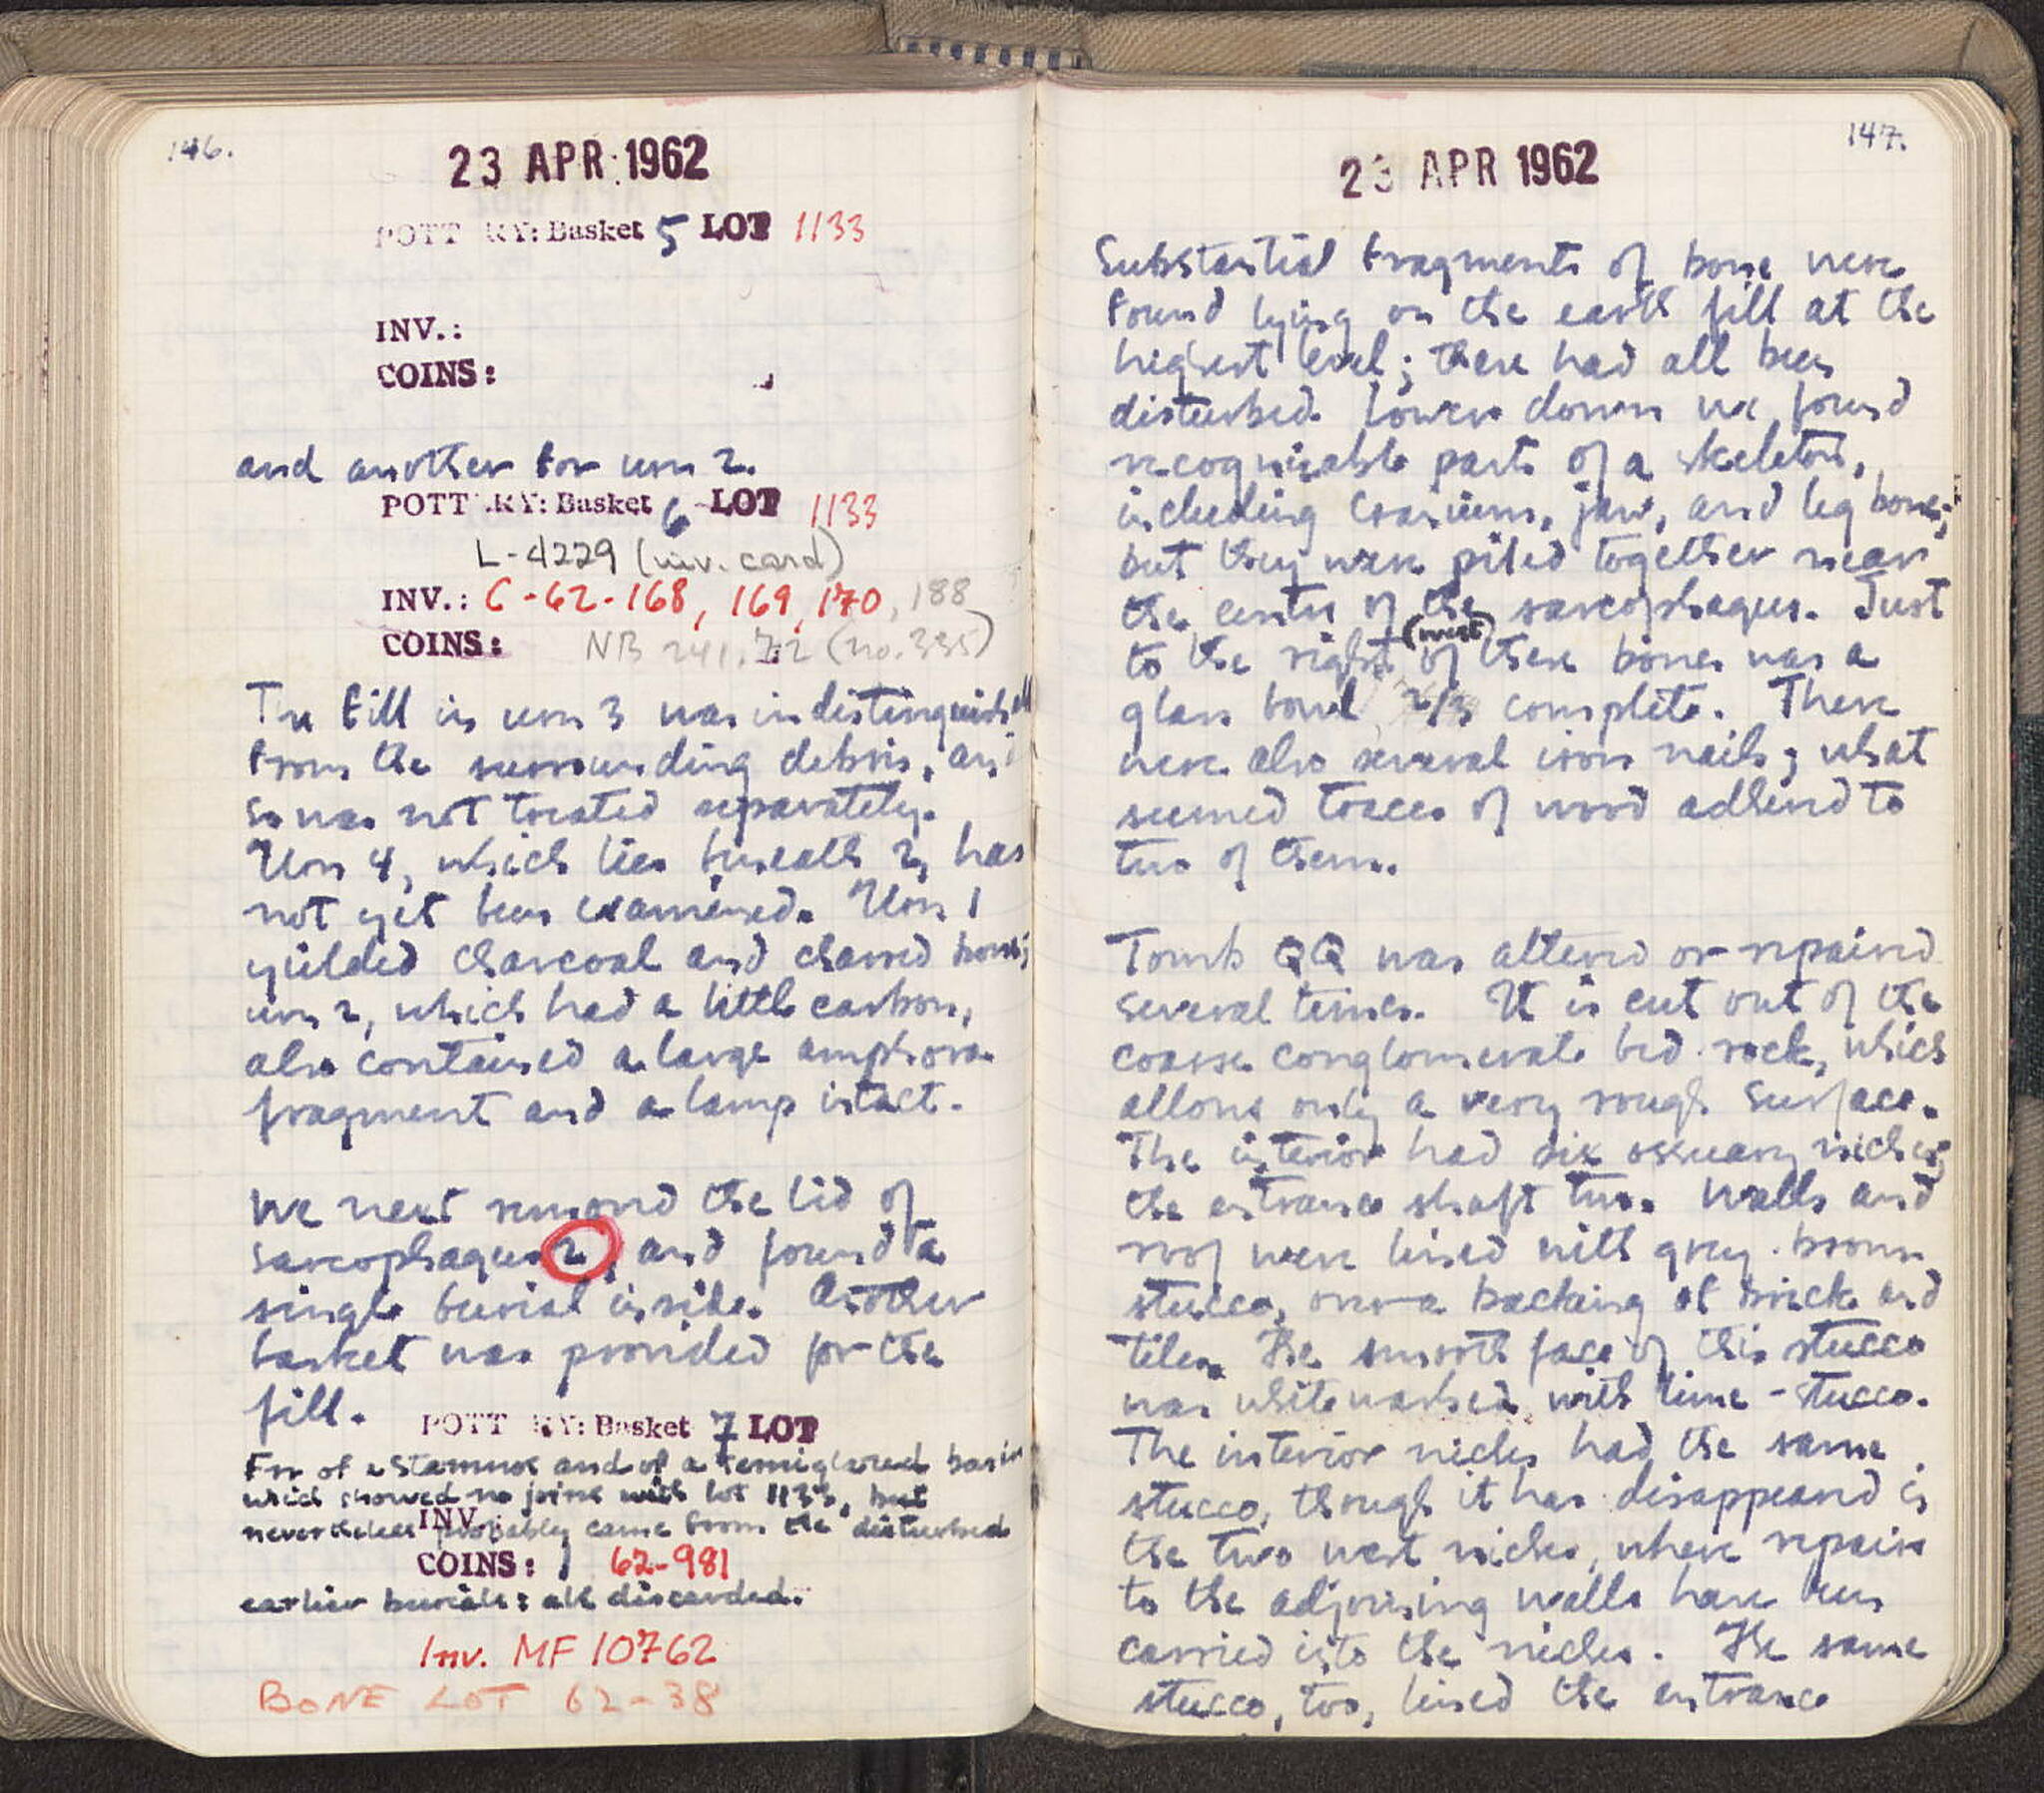 146.
23 APR 1962
POTT RY: Basket 5 LOT 1133
INV.:
COINS:
and another for urn 2.
POTT RY: Basket 6 LOT 1133
L-4229 (inv. card)
INV.: C-62-168, 169, 170, 188
COINS: NB 241, 72 (no. 335)
The fill in urn 3 was indistinguishabl
from the surrounding debris, and
so was not treated separately.
Urn 4, which lies beneath 2, has
not yet been examined. Urn 1
yielded charcoal and charred bones;
urn 2, which had a little carbon,
also contained a large amphora
fragment and a lamp intact.
We next removed the lid of
sarcophagus 2, and found a
single burial inside. Another
basket was provided for the
fill.
POTT RY: Basket 7 LOT
Frr of a stamnos and of a semiglazed basin
which showed no joins with lot 1133, but
INV.:
nevertheless probably came from the disturbed
COINS: 1 62-981
earlier burials: all discarded.
Inv. MF 10762
BONE LOT 62-38
147.
23 APR 1962
Substantial fragments of bone were
found lying on the earth fill at the
highest level; these had all been
disturbed. Lower down we found
recognizable parts of a skeleton,
including cranium, jaw, and leg bones;
but they were piled together near
the center of the sarcophagus. Just
to the right (west) of these bones was a
glass bowl 2/3 complete. There
were also several iron nails; what
seemed traces of wood adhered to
two of them.
Tomb QQ was altered or repaired
several times. It is cut out of the
coarse conglomerate bed-rock, which
allows only a very rough surface.
The interior had six ossuary niches;
the entrance shaft two. Walls and
roof were lined with grey-brown
stucco, over a backing of brick and
tiles. The smooth face of this stucco
was whitewashed with lime-stucco.
The interior niches had the same
stucco, though it has disappeared in
the two west niches, where repairs
to the adjoining walls have been
carried into the niches. The same
stucco, too, lined the entrance